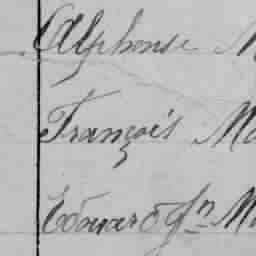 Alphonse M
François Ma
Edouard Jn Ma